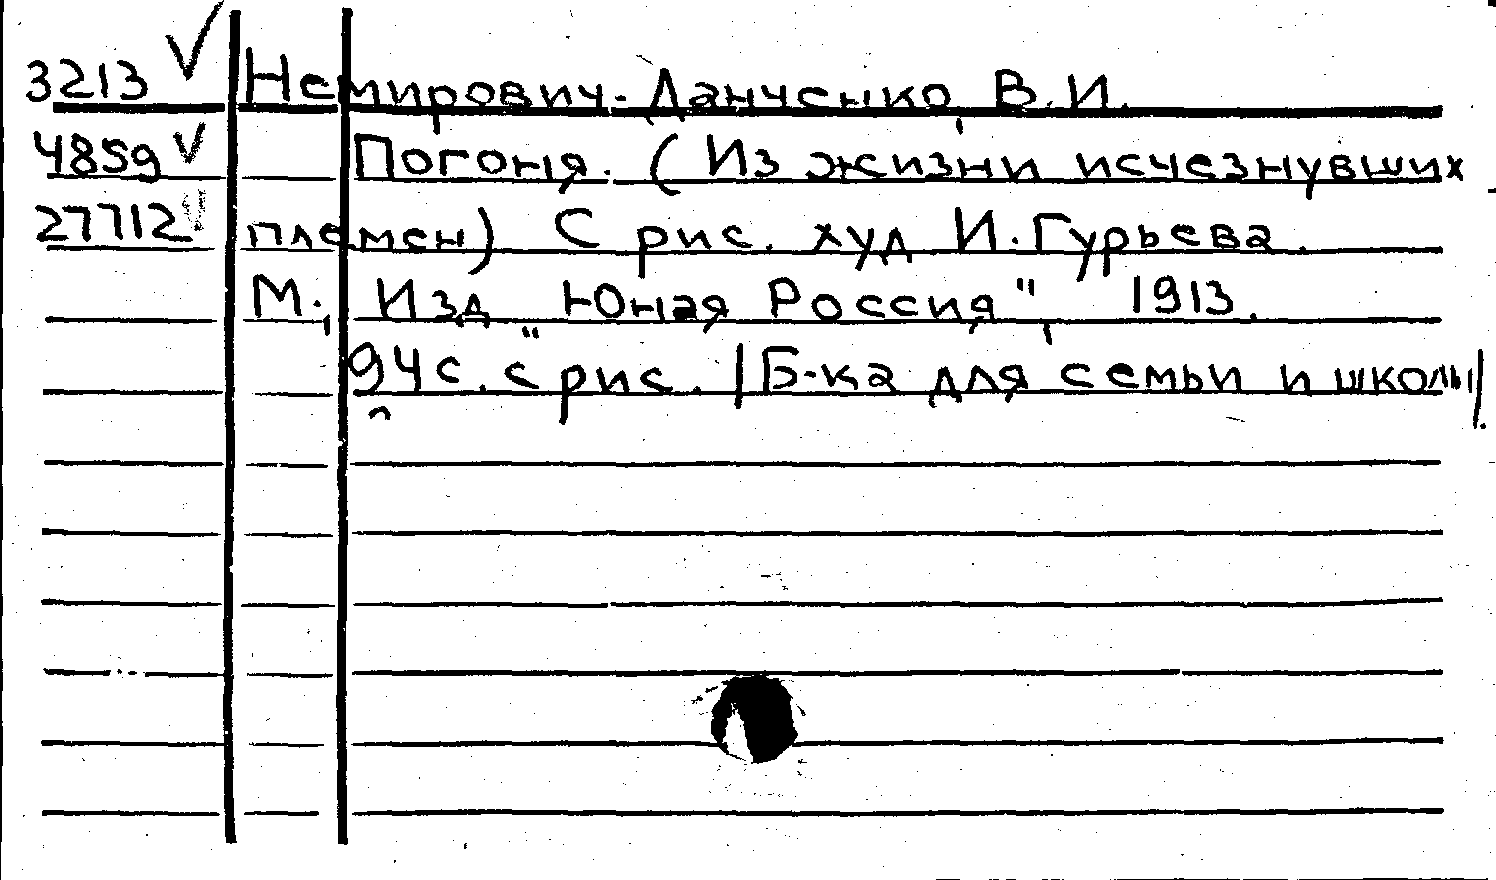 3213 ✓ Немирович-Данченко, В.И.
4859 ✓ Погоня. (Из жизни исчезнувших
27712 ✓ племен) С рис. худ И. Гурьева.
М., Изд "Юная Россия", 1913.
94 с. с рис. /Б-ка для семьи и школы/.